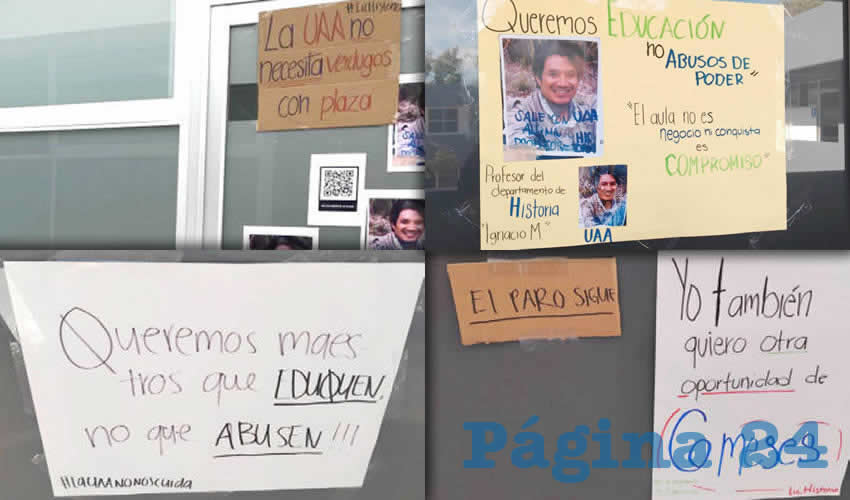 #LicHistoria
La UAA no
necesita verdugos
con plaza
Queremos EDUCACIÓN
no ABUSOS DE
PODER"
SALE CON
UAA
"El aula no es
negocio ni conquista
es
COMPROMISO"
Profesor del
departamento de
HIstoria
"Ignacio M"
UAA
Queremos maes-
tros que EDUQUEN,
no que ABUSEN!!!
#laUAAnonoscuida
El PARO SIGUE
Yo también
quiero otra
oportunidad de
(6 meses)
Lic. Historia
Página 24